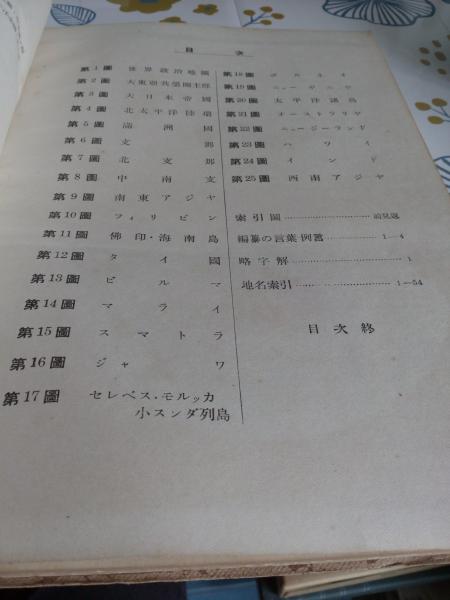 目次
第1圖 世界政治地圖
第2圖 大東亞共榮圏主部
第3圖 大日本帝國
第4圖 北太平洋諸
第5圖 滿洲國
第6圖 支那
第7圖 北支那
第8圖 中南支
第9圖 南東アジヤ
第10圖 フィリピン
第11圖 佛印・海南島
第12圖 タイ國
第13圖 ビルマ
第14圖 マライ
第15圖 スマトラ
第16圖 ジャワ
第17圖 セレベス・モルッカ
小スンダ列島
第18圖 ボルネオ
第19圖 ニューギニヤ
第20圖 太平洋諸島
第21圖 オーストラリヤ
第22圖 ニュージーランド
第23圖 ハワイ
第24圖 インド
第25圖 西南アジヤ
索引圖 前見返
編纂の言葉・例言 1—4
略字解 1
地名索引 1—54
目次終